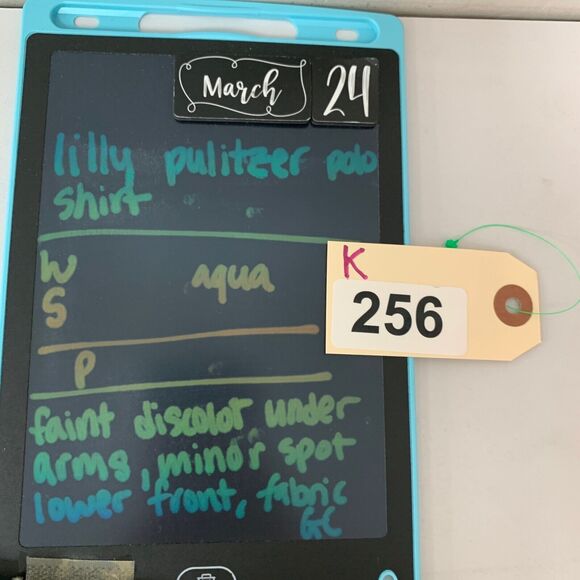 March 24
lilly pulitzer polo
shirt
W aqua
S
P
faint discolor under
arms, minor spot
lower front, fabric
GC
K
256